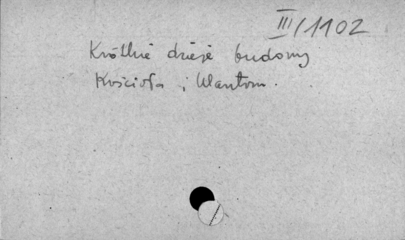 III/1102
Krótkie dzieje budowy
Kościoła i klasztoru.